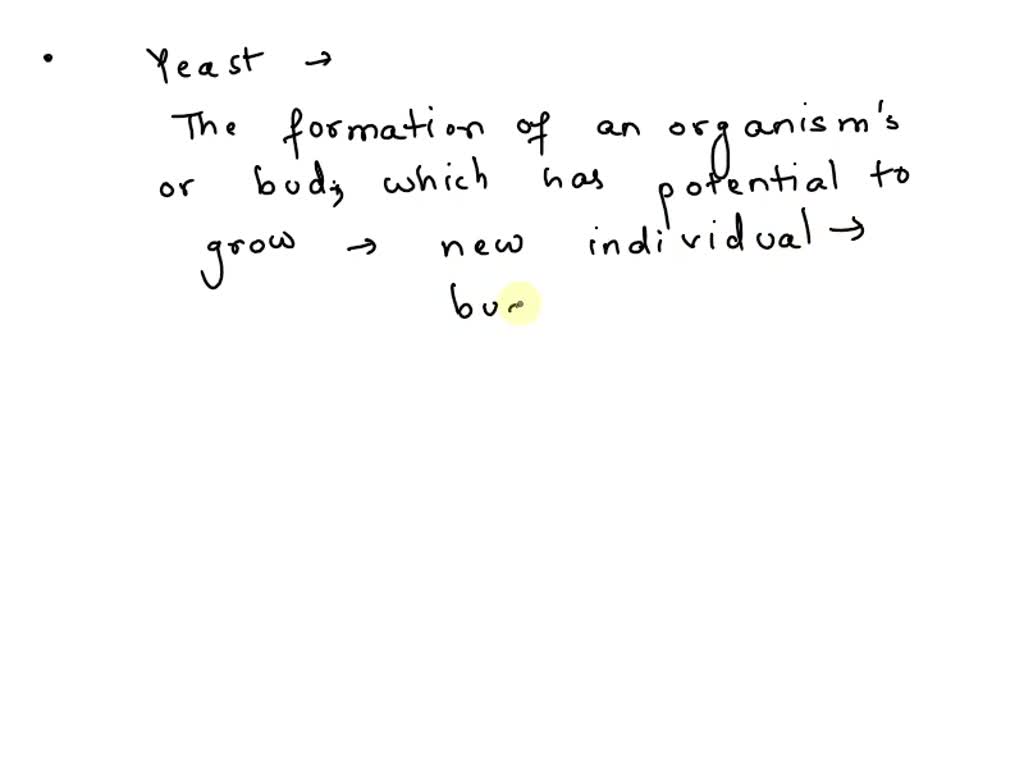 • Yeast →
The formation of an organism's
or bud; which has potential to
grow → new individual →
bu